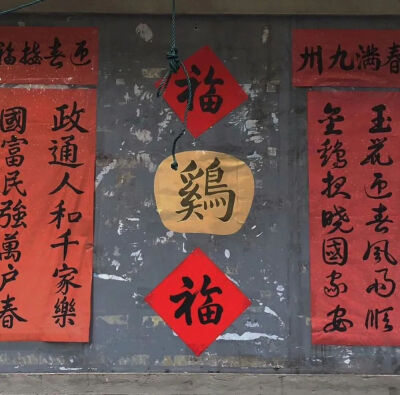 春满九州
玉花迎春風雨順
金鷄报曉國家安
福
鷄
福
迎春接福
政通人和千家樂
國富民強萬户春